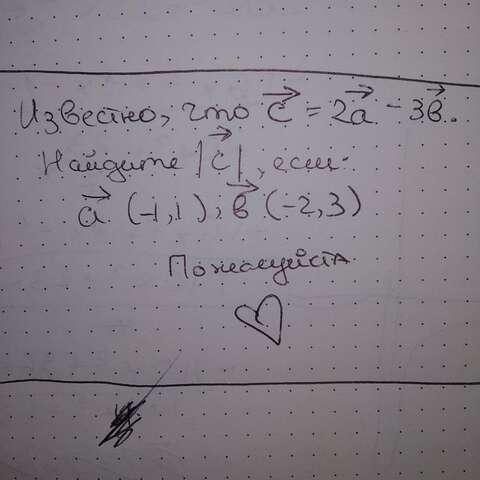 Известно, что c⃗ = 2a⃗ - 3в⃗.
Найдите |c⃗|, если
a⃗ (-1,1), в⃗ (-2,3)
Пожалуйста